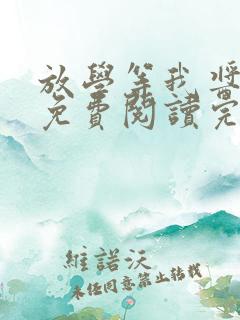 放學等我 將
免費閱讀完
維諾沃
未任同意禁止轉載